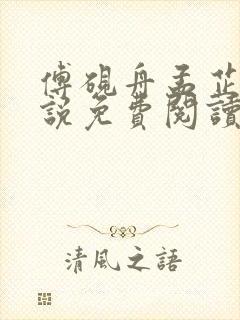 傅硯舟孟芷
說免費閱讀
清風之語